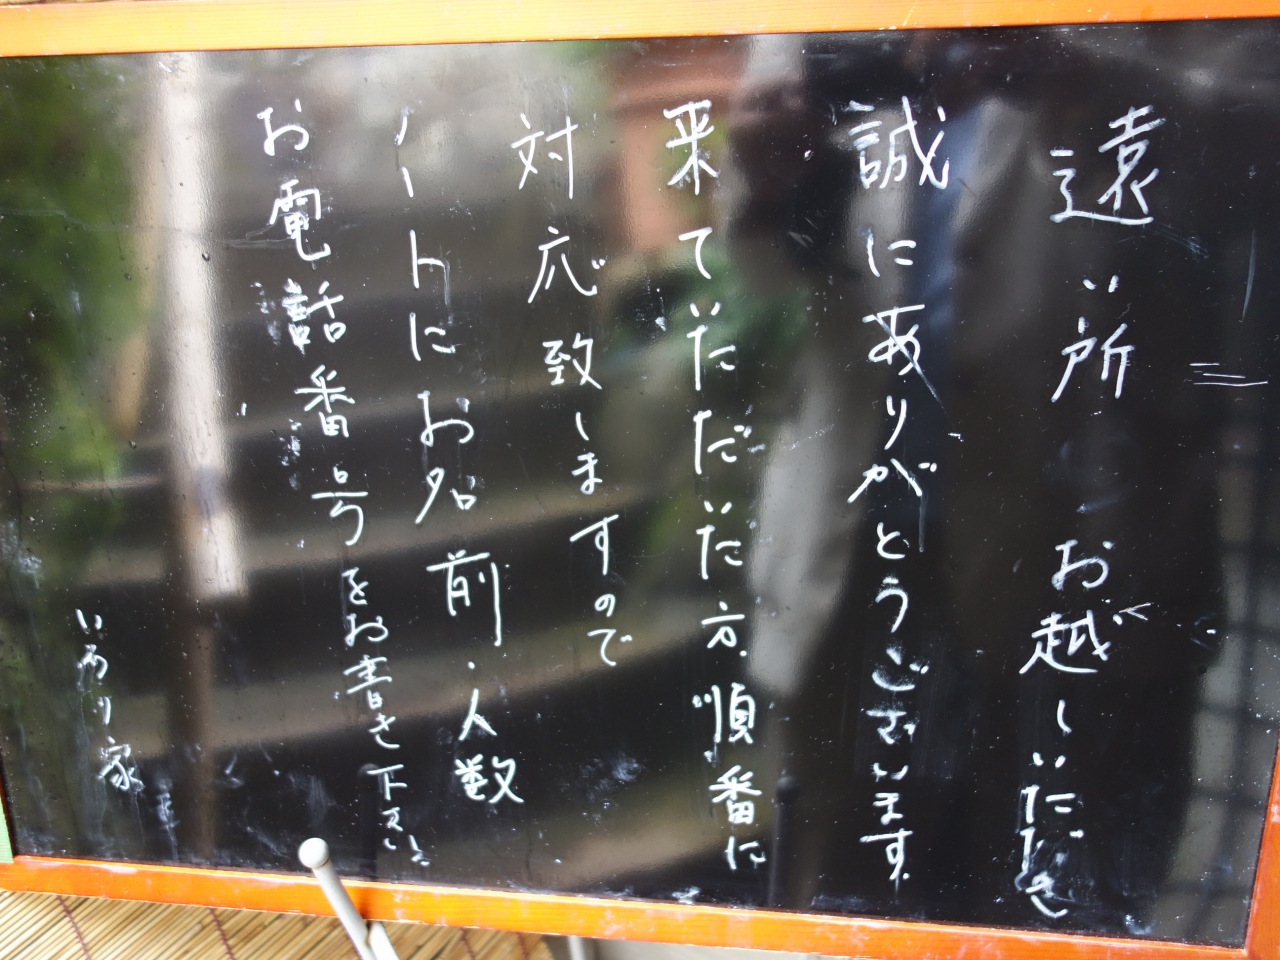 遠い所 お越しいただき
誠にありがとうございます。
来ていただいた方、順番に
対応致しますので
ノートにお名前・人数
お電話番号をお書き下さい。
いろり家